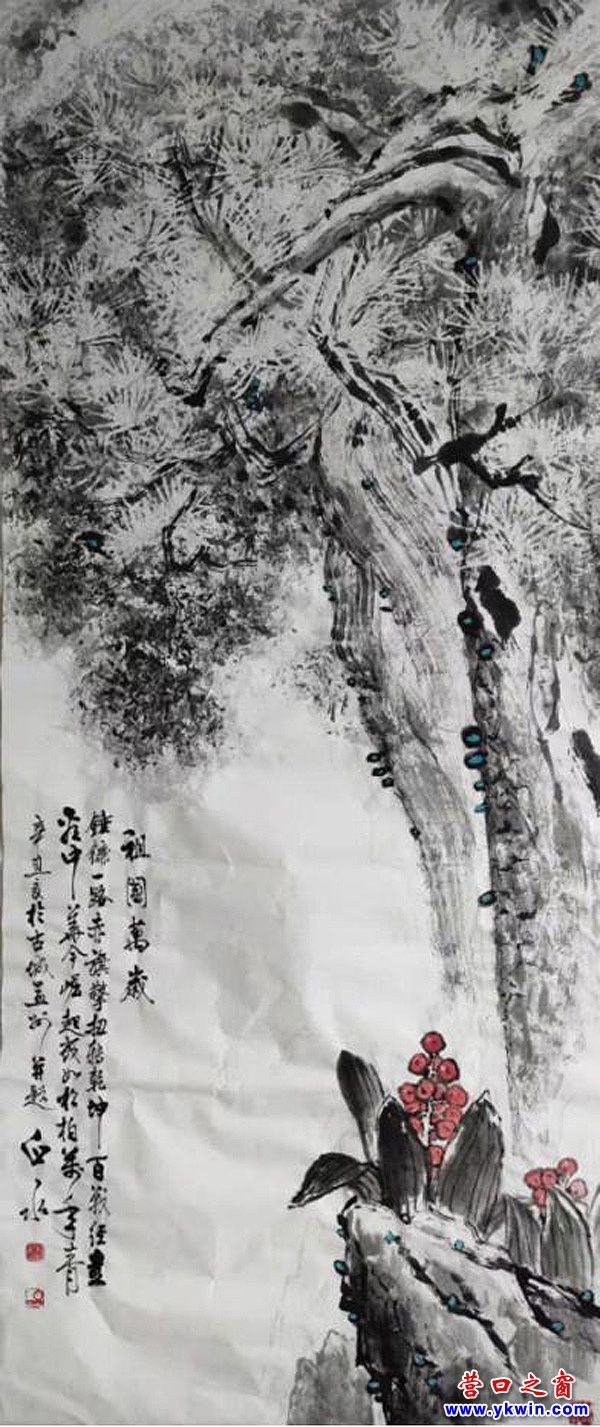 祖國萬歲
錘鐮一路赤旗擎扭轉乾坤百戰經臺
岩中華今崛起我如松柏萬年青
辛丑夏於古城蓋州 并題 白水
营口之窗
www.ykwin.com